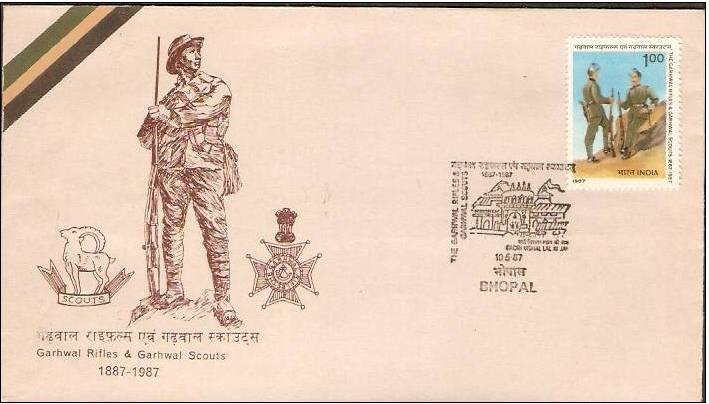 SCOUTS
गढ़वाल राइफ़ल्स एवं गढ़वाल स्काउट्स
Garhwal Rifles & Garhwal Scouts
1887-1987
गढ़वाल राइफल्स एवं गढ़वाल स्काउट्स
1.00
THE GARHWAL RIFLES & GARHWAL SCOUTS 1887-1987
भारत INDIA
1987
गढ़वाल राइफल्स एवं गढ़वाल स्काउट्स
1887-1987
THE GARHWAL RIFLES &
GARHWAL SCOUTS
BADRI VISHAL LAL KI JAI
10.5.87
भोपाल
BHOPAL